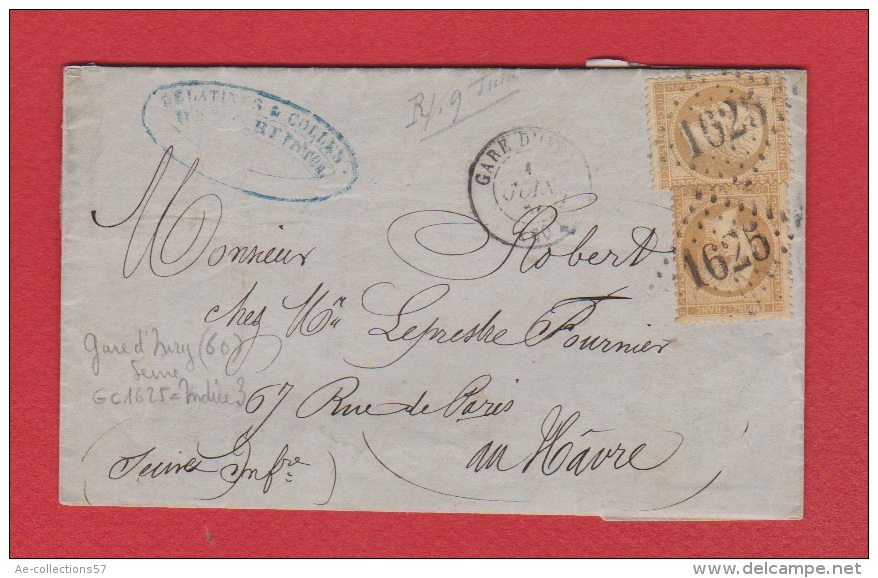 & COLLES
R/. 9 Juin
GARE D'
1
JUIN
1625
1625
Monsieur Robert
chez Mr Leprestre Fournier
67 Rue de Paris
au Hâvre
(Seine Infre)
Gare d'Ivry (60)
Seine
GC1625 = Indice 3
Ae-collections57
delcampe.net